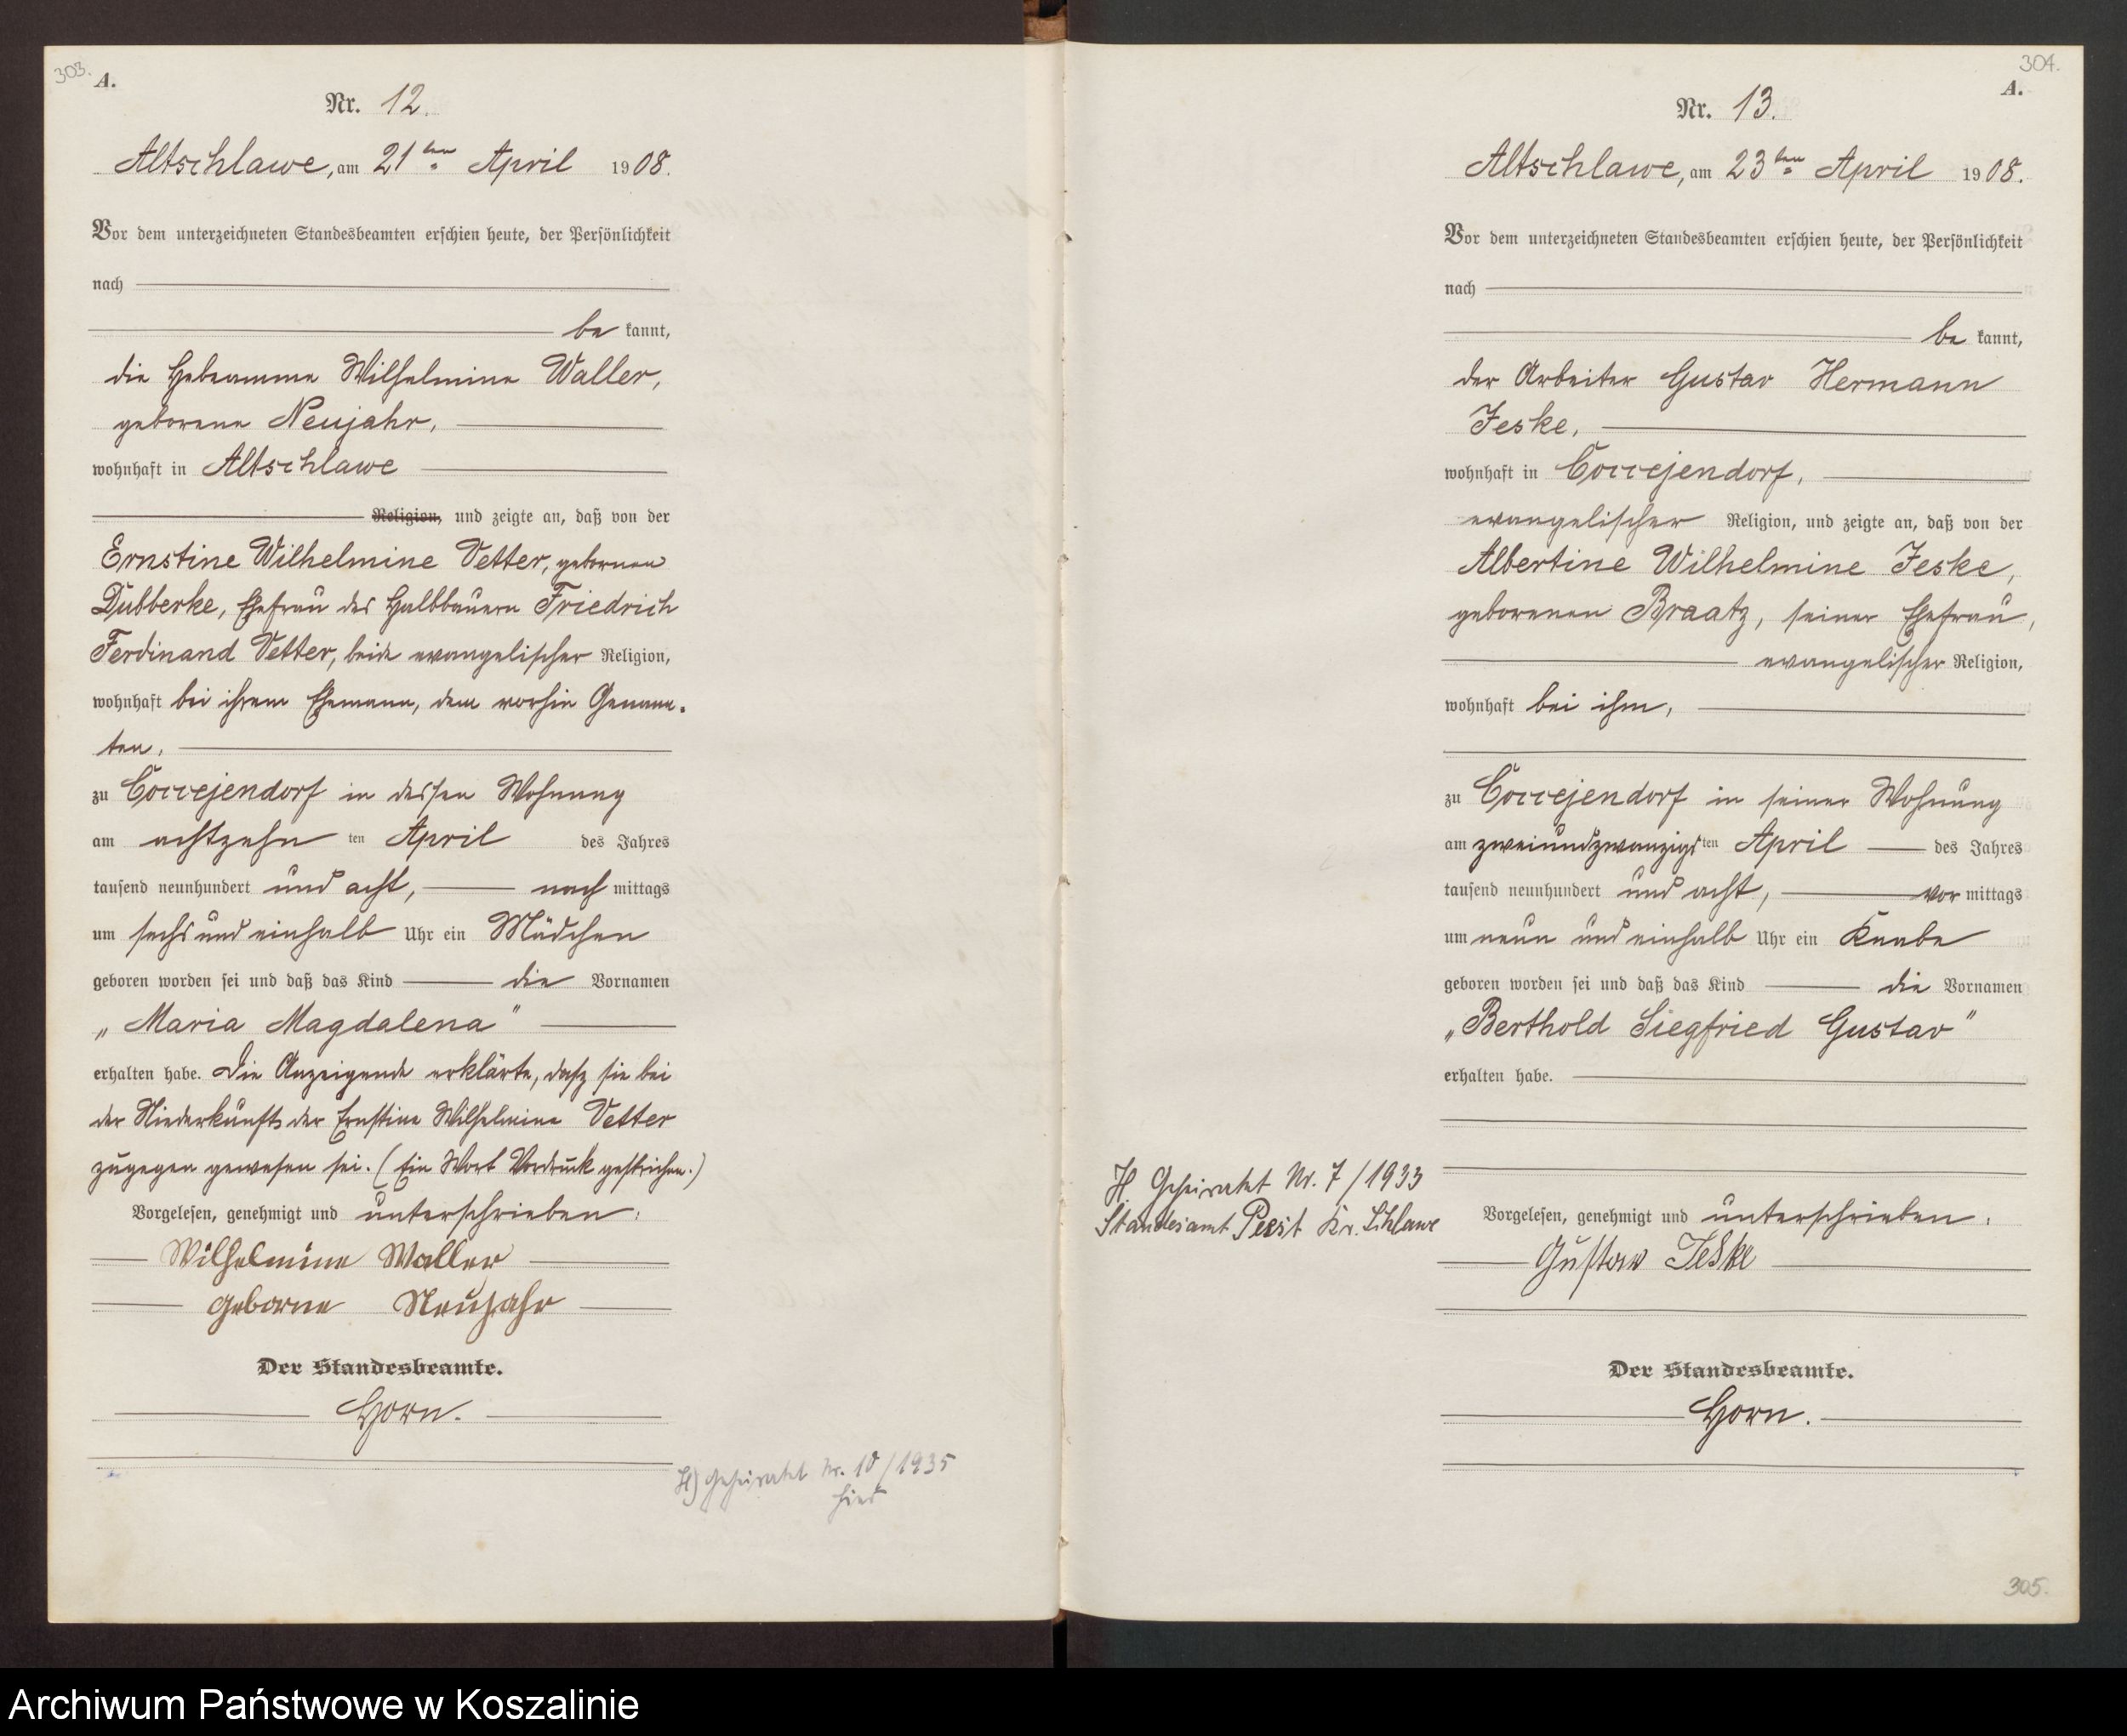 303.
A.
Nr. 12.
Altschlawe, am 21ten April 1908.
Vor dem unterzeichneten Standesbeamten erschien heute, der Persönlichkeit
nach
be kannt,
die Hebeamme Wilhelmine Waller,
geborene Neujahr,
wohnhaft in Altschlawe
Religion, und zeigte an, daß von der
Ernstine Wilhelmine Vetter, gebornen
Dubberke, Ehefrau des Halbbauern Friedrich
Ferdinand Vetter, beide evangelischer Religion,
wohnhaft bei ihrem Ehemann, dem vorhin Genann-
ten,
zu Coccejendorf in dessen Wohnung
am achtzehn ten April des Jahres
tausend neunhundert und acht, nach mittags
um sechs und einhalb Uhr ein Mädchen
geboren worden sei und daß das Kind die Vornamen
„Maria Magdalena"
erhalten habe. Die Anzeigende erklärte, daß sie bei
der Niederkunft der Ernstine Wilhelmine Vetter
zugegen gewesen sei. (Ein Wort Vordruck gestrichen.)
Vorgelesen, genehmigt und unterschrieben:
Wilhelmine Waller
geborne Neujahr
Der Standesbeamte.
Horn.
H) Geheiratet Nr. 10/1935
hier
304.
A.
Nr. 13.
Altschlawe, am 23ten April 1908.
Vor dem unterzeichneten Standesbeamten erschien heute, der Persönlichkeit
nach
be kannt,
der Arbeiter Gustav Hermann
Jeske,
wohnhaft in Coccejendorf,
evangelischer Religion, und zeigte an, daß von der
Albertine Wilhelmine Jeske,
geborenen Braatz, seiner Ehefrau,
evangelischer Religion,
wohnhaft bei ihm,
zu Coccejendorf in seiner Wohnung
am zweiundzwanzigsten April des Jahres
tausend neunhundert und acht, vor mittags
um neun und einhalb Uhr ein Knabe
geboren worden sei und daß das Kind die Vornamen
„Berthold Siegfried Gustav"
erhalten habe.
H. Geheiratet Nr. 7/1933
Standesamt Peest Kr. Schlawe
Vorgelesen, genehmigt und unterschrieben:
Gustaw Jeske
Der Standesbeamte.
Horn.
305.
Archiwum Państwowe w Koszalinie